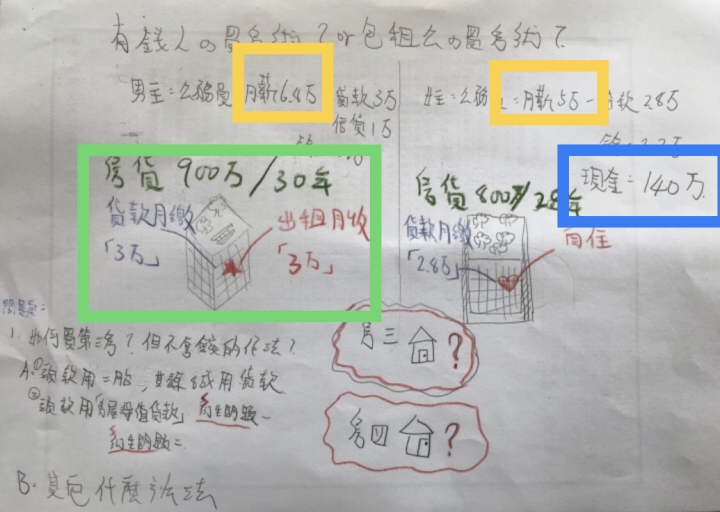 有錢人の買房術？or包租公の買房術？
男主=公務員 月薪6.4万 貸款3万
信貸1万
女主=公務 =月薪5万-貸款2.8万
現金=140万
房貸900万/30年
貸款月繳
「3万」
出租月收
「3万」
房貸800万/28年
貸款月繳
「2.8万」
自住
問題:
1.如何買第三房？但不含錢的作法？
A.①頭款用二胎,其餘8成用貸款
②頭款用「房屋增值貸款」 衍生問題一
衍生問題二
房三 ？
房四 ？
B.其它什麼方法